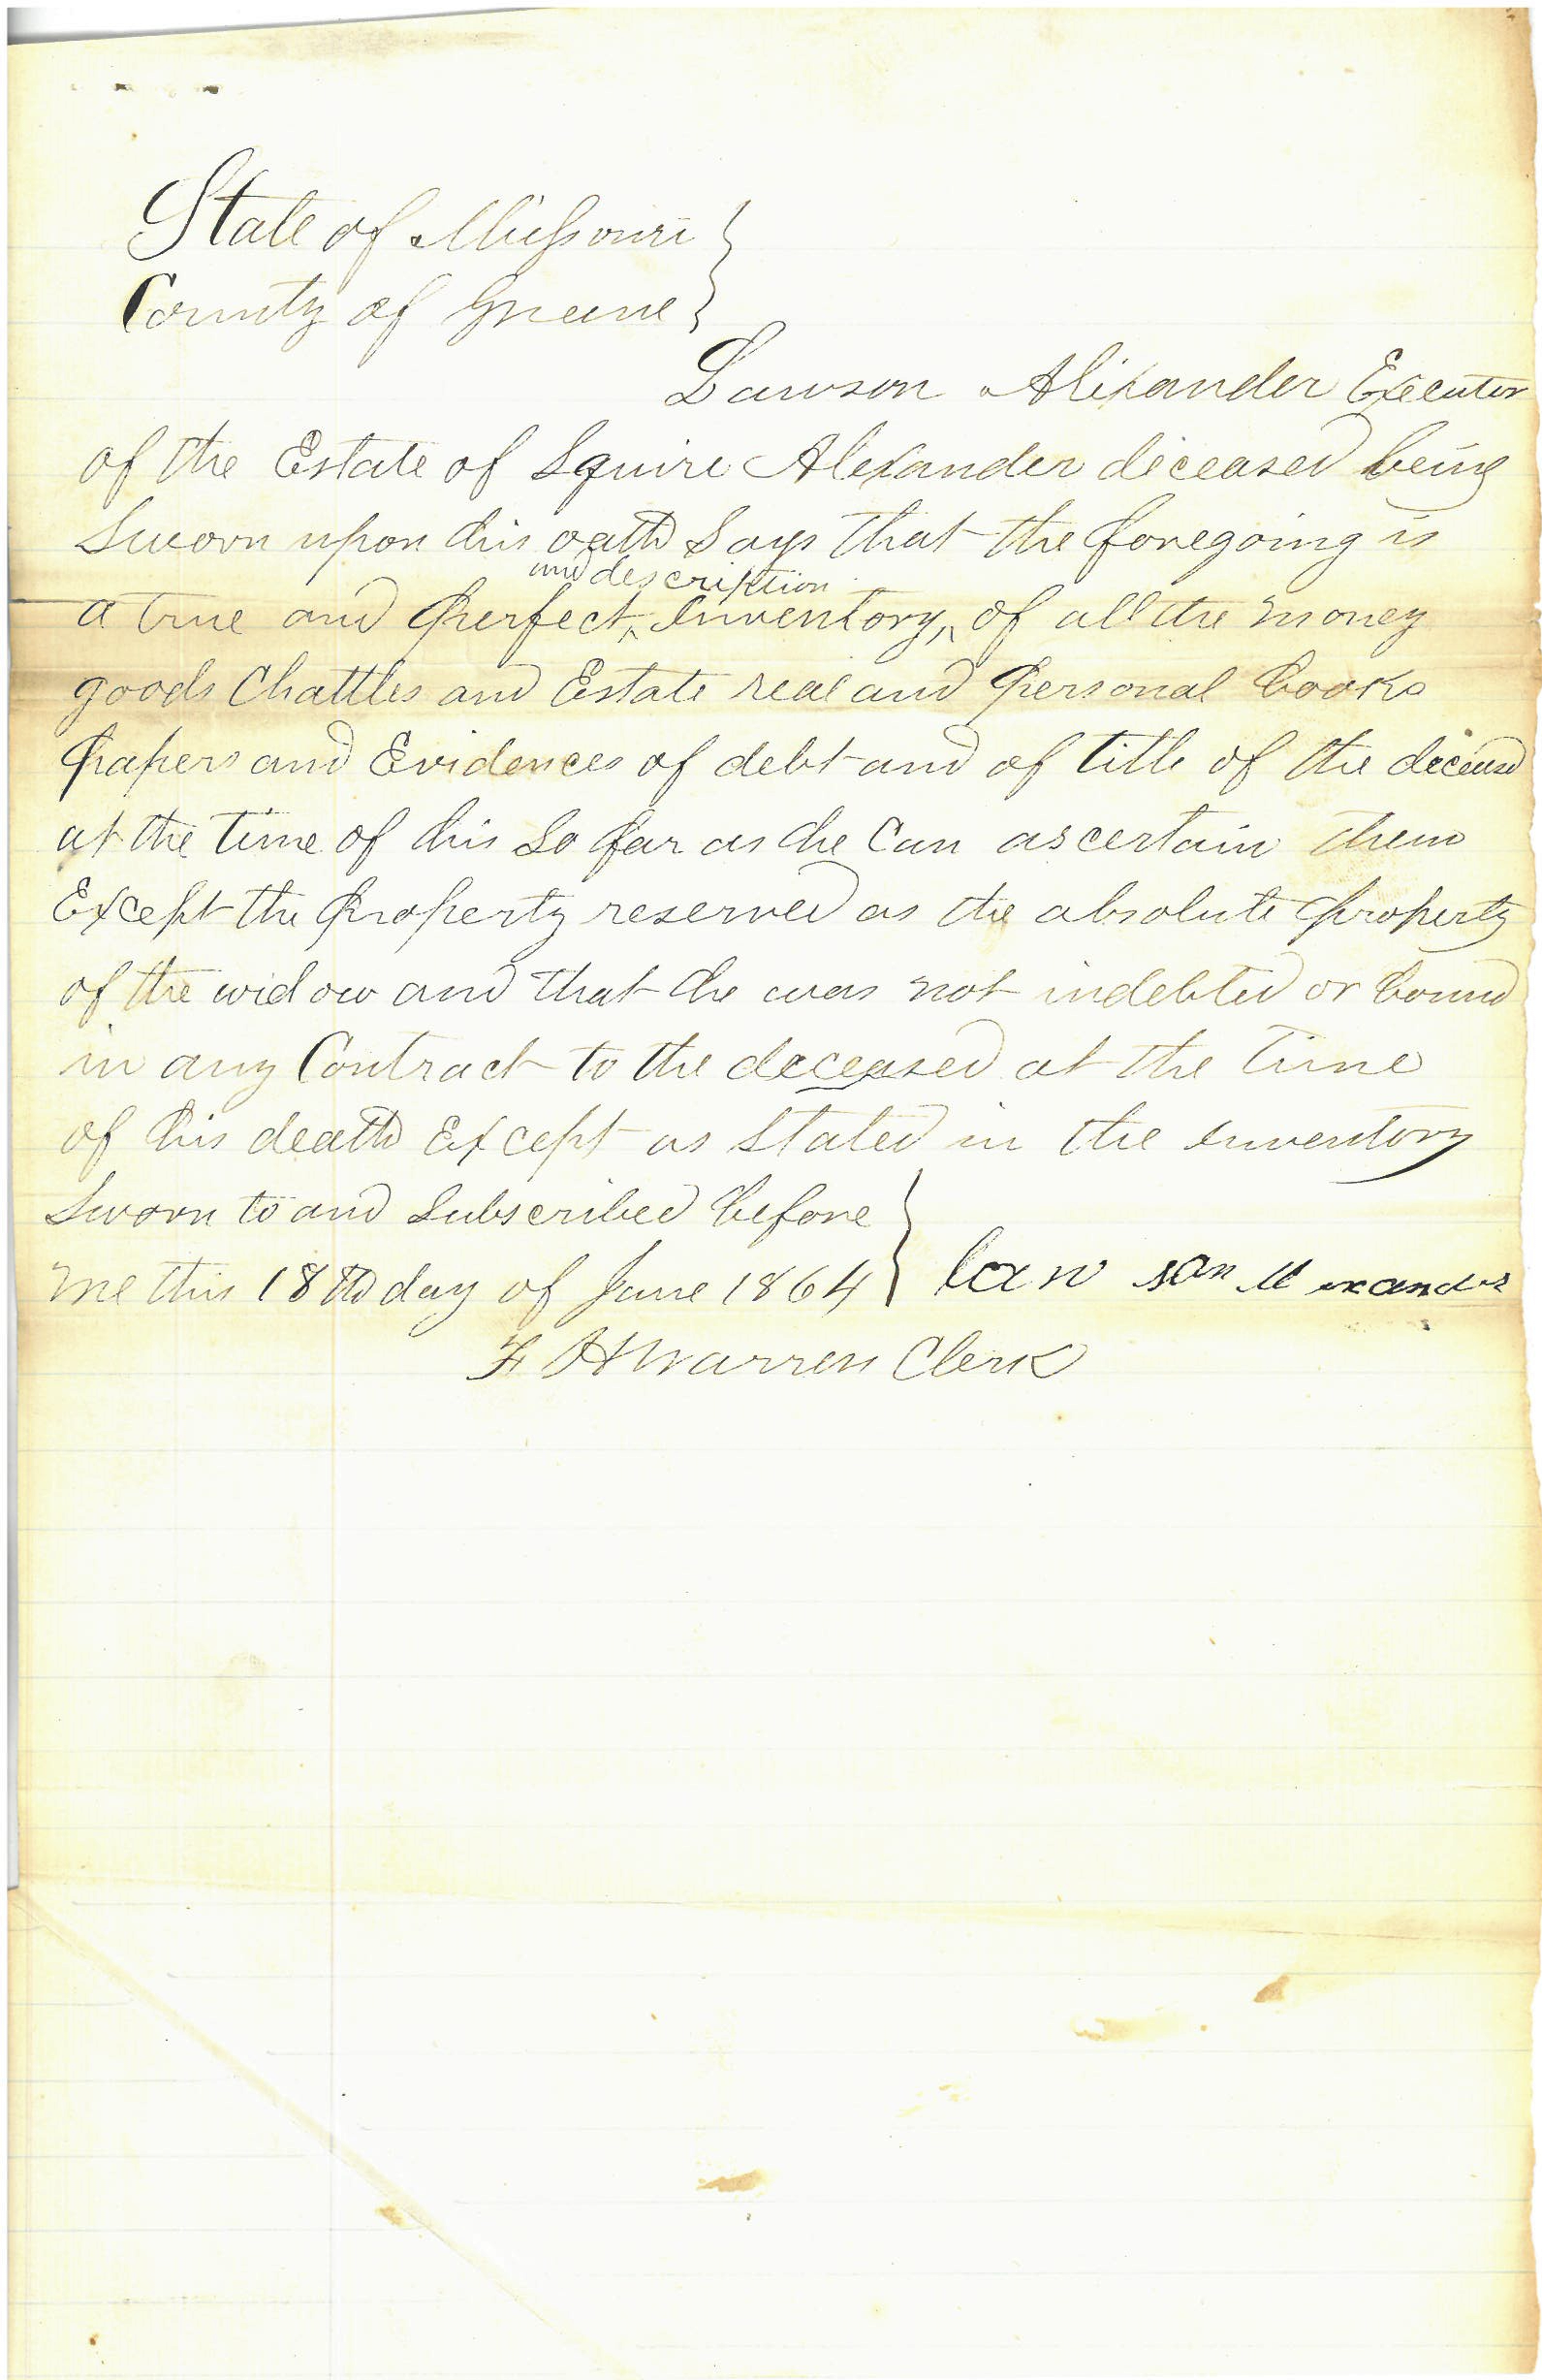 State of Missouri }
County of Greene }
Lawson Alexander Executor
of the Estate of Squire Alexander deceased being
Sworn upon his oath Says that the foregoing is
and description
a true and perfect ^ Inventory, ^ of all the money
goods Chattles and Estate real and personal books
papers and Evidences of debt and of title of the deceased
at the time of his So far as he Can ascertain them
Except the property reserved as the absolute property
of the widow and that he was not indebted or bound
in any Contract to the deceased at the time
of his death Except as Stated in the inventory
Sworn to and Subscribed before }
me this 18th day of June 1864 } law son Al exander
F H Warren Clerk